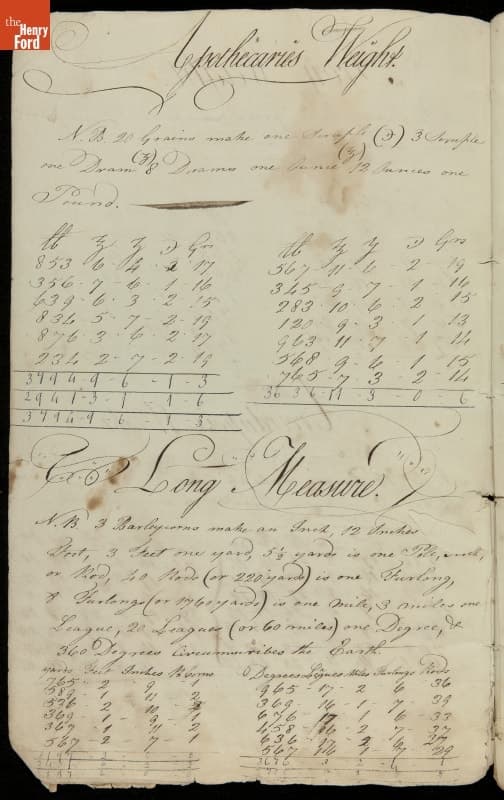 the
Henry
Ford
Apothecaries Weight.
N.B. 20 Grains make one Scruple (℈) 3 Scruple
one Dram (ʒ) 8 Drams one Ounce (℥) 12 Ounces one
Pound.
lb ℥ ʒ ℈ Grs
853 - 6 - 4 - 2 - 17
356 - 7 - 6 - 1 - 16
639 - 6 - 3 - 2 - 15
834 - 5 - 7 - 2 - 19
876 - 3 - 6 - 2 - 17
234 - 2 - 7 - 2 - 19
3794 - 9 - 6 - 1 - 3
2941 - 3 - 1 - 1 - 6
3794 - 9 - 6 - 1 - 3
lb ℥ ʒ ℈ Grs
567 - 11 - 6 - 2 - 19
345 - 9 - 7 - 1 - 16
283 - 10 - 6 - 2 - 15
120 - 9 - 3 - 1 - 13
963 - 11 - 7 - 1 - 14
568 - 9 - 6 - 1 - 15
765 - 7 - 3 - 2 - 14
3636 - 11 - 3 - 0 - 6
Long Measure.
N.B. 3 Barleycorns make an Inch, 12 Inches
Foot, 3 Feet one yard, 5½ yards is one Pole,
or Rod, 40 Rods (or 220 yards) is one Furlong,
8 Furlongs (or 1760 yards) is one Mile, 3 miles one
League, 20 Leagues (or 60 miles) one Degree, &
360 Degrees Circumscribes the Earth
yards Feet Inches B Corns
765 - 2 - 9 - 1
589 - 1 - 11 - 2
536 - 2 - 10 -
369 - 1 - 9 - 1
367 - 1 - 11 - 2
567 - 2 - 7 - 1
Degrees Leagues Miles Furlongs Rods
965 - 17 - 2 - 6 - 36
369 - 16 - 1 - 7 - 39
676 - 17 - 1 - 6 - 33
458 - 16 - 2 - 7 - 37
636 - - 2 - 6 - 27
567 - - 1 - 7 - 29